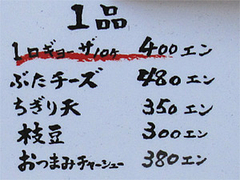 1品
1ロギョーザ10ケ 400エン
ぶたチーズ 480エン
ちぎり天 350エン
枝豆 300エン
おつまみチャーシュー 380エン